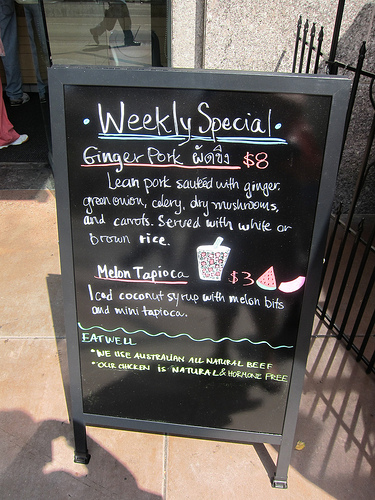 • Weekly Special •
Ginger Pork ผัดขิง $8
Lean pork sautéed with ginger,
green onion, celery, dry mushrooms,
and carrots. Served with white or
brown rice.
Melon Tapioca $3
Iced coconut syrup with melon bits
and mini tapioca.
EAT WELL
• WE USE AUSTRALIAN ALL NATURAL BEEF
• OUR CHICKEN IS NATURAL & HORMONE FREE